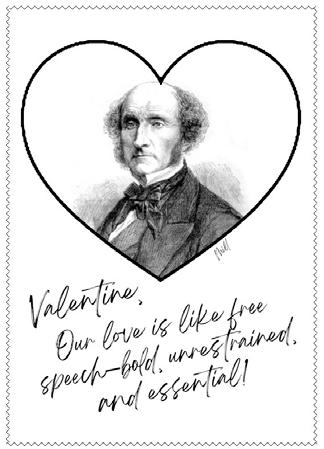 Valentine,
Our love is like free
speech—bold, unrestrained,
and essential!